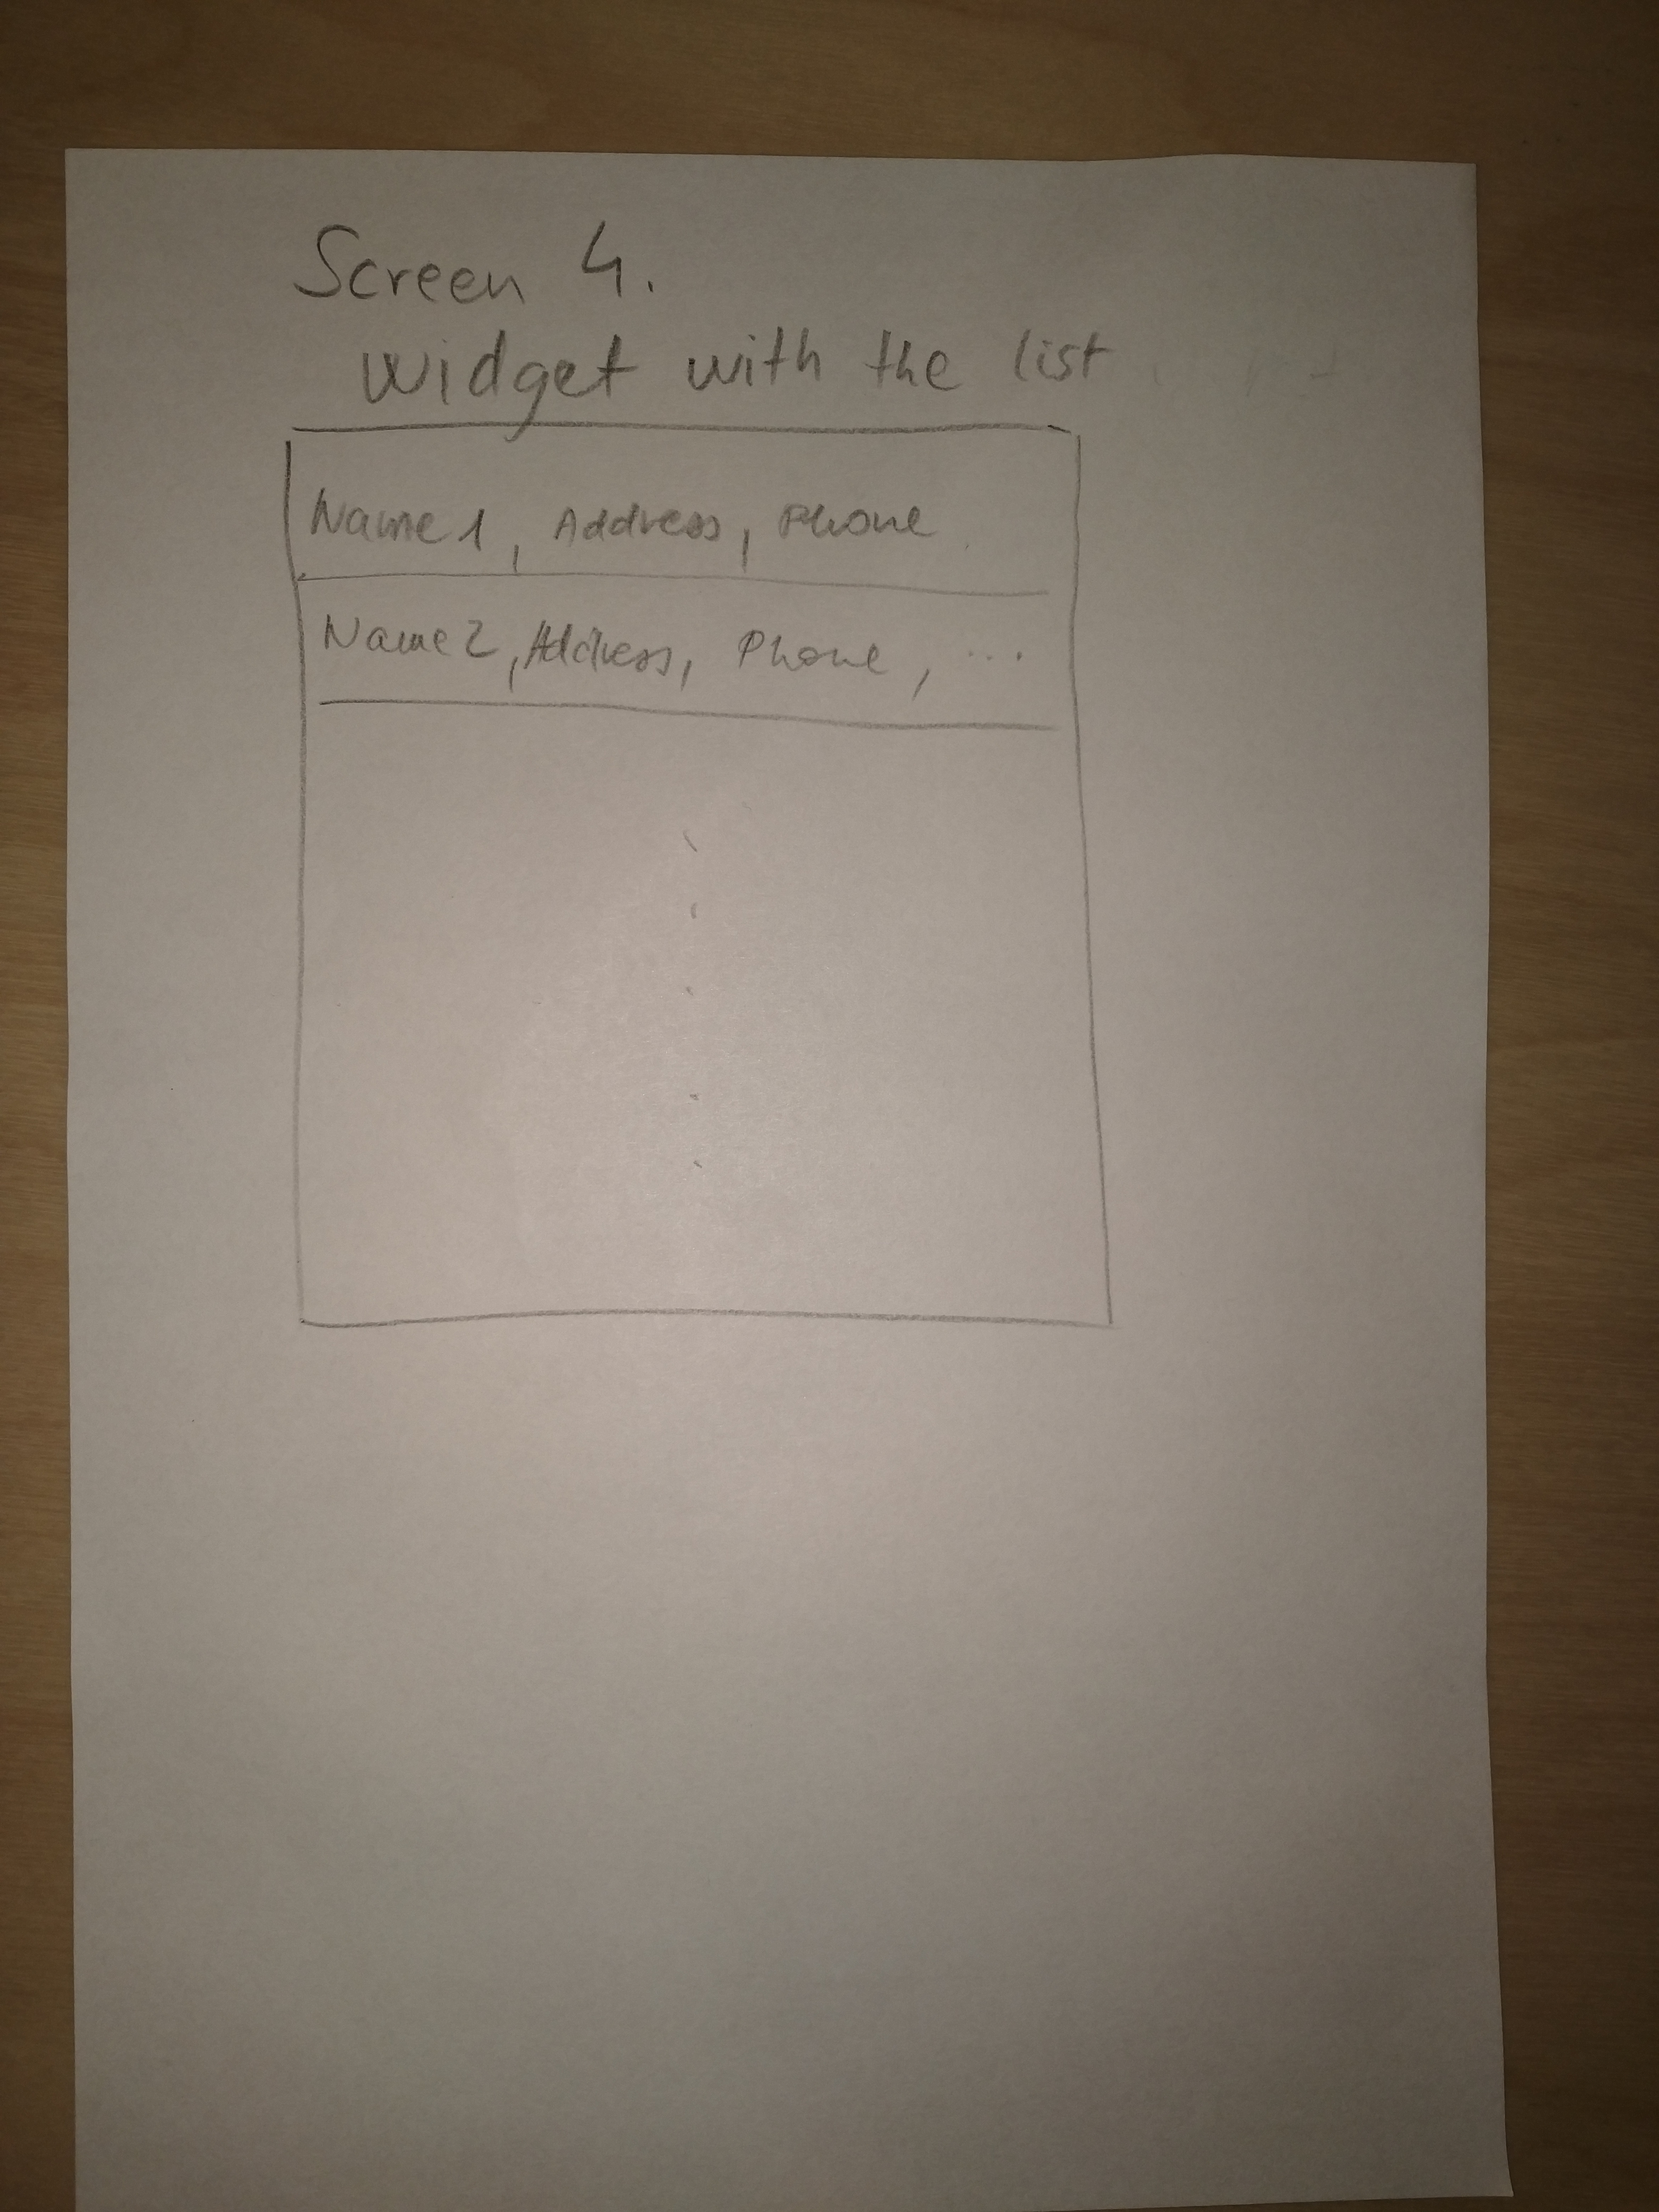 Screen 4.
widget with the list
Name1, Address, Phone
Name2, Address, Phone, ...